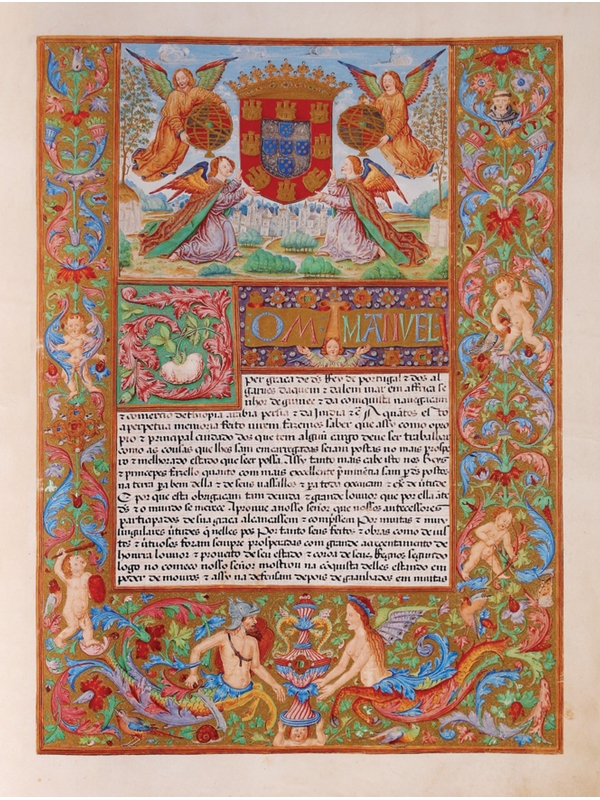 DOM MANVEL
per graca de ds Rey de portugal ⁊ dos al
garues daquem ⁊ dalem mar em affrica se
nhor de guinee ⁊ da comquista nauegacam
⁊ comercio dethiopia arabia persia ⁊ da India
a perpetua memoria feito virem fazemos saber que assy como opro
prio ⁊ principal cuidado dos que tem algũu cargo deue ser trabalhar
como as cousas que lhes sam emcarregadas seiam postas no mais prospe
ro ⁊ melhorado estado que seer possa. Assy tanto mais cabe isto nos Reys
⁊ principes
na terra pera bem della ⁊ de seus vassallos ⁊ pera todos
E por que esta obrigacam tam deuida ⁊ grande louuor que por ella ate
ds ⁊ o mundo se merece Aprouue a nosso señor que nossos antecessores
participados de sua graca alcancassem ⁊ comprissem Por muitas ⁊ muy
singulares que nelles pos Por tanto seus feitos ⁊ obras como de
⁊ foram sempre prosperadas com grande acrecentamento de
honrra louuor ⁊ proueito de seu estado ⁊ coroa de seus Regnos segundo
logo no comeco nosso señor mostrou na cõquista delles estando em
poder de mouros ⁊ assy na defensam depois de guanhados em muitas